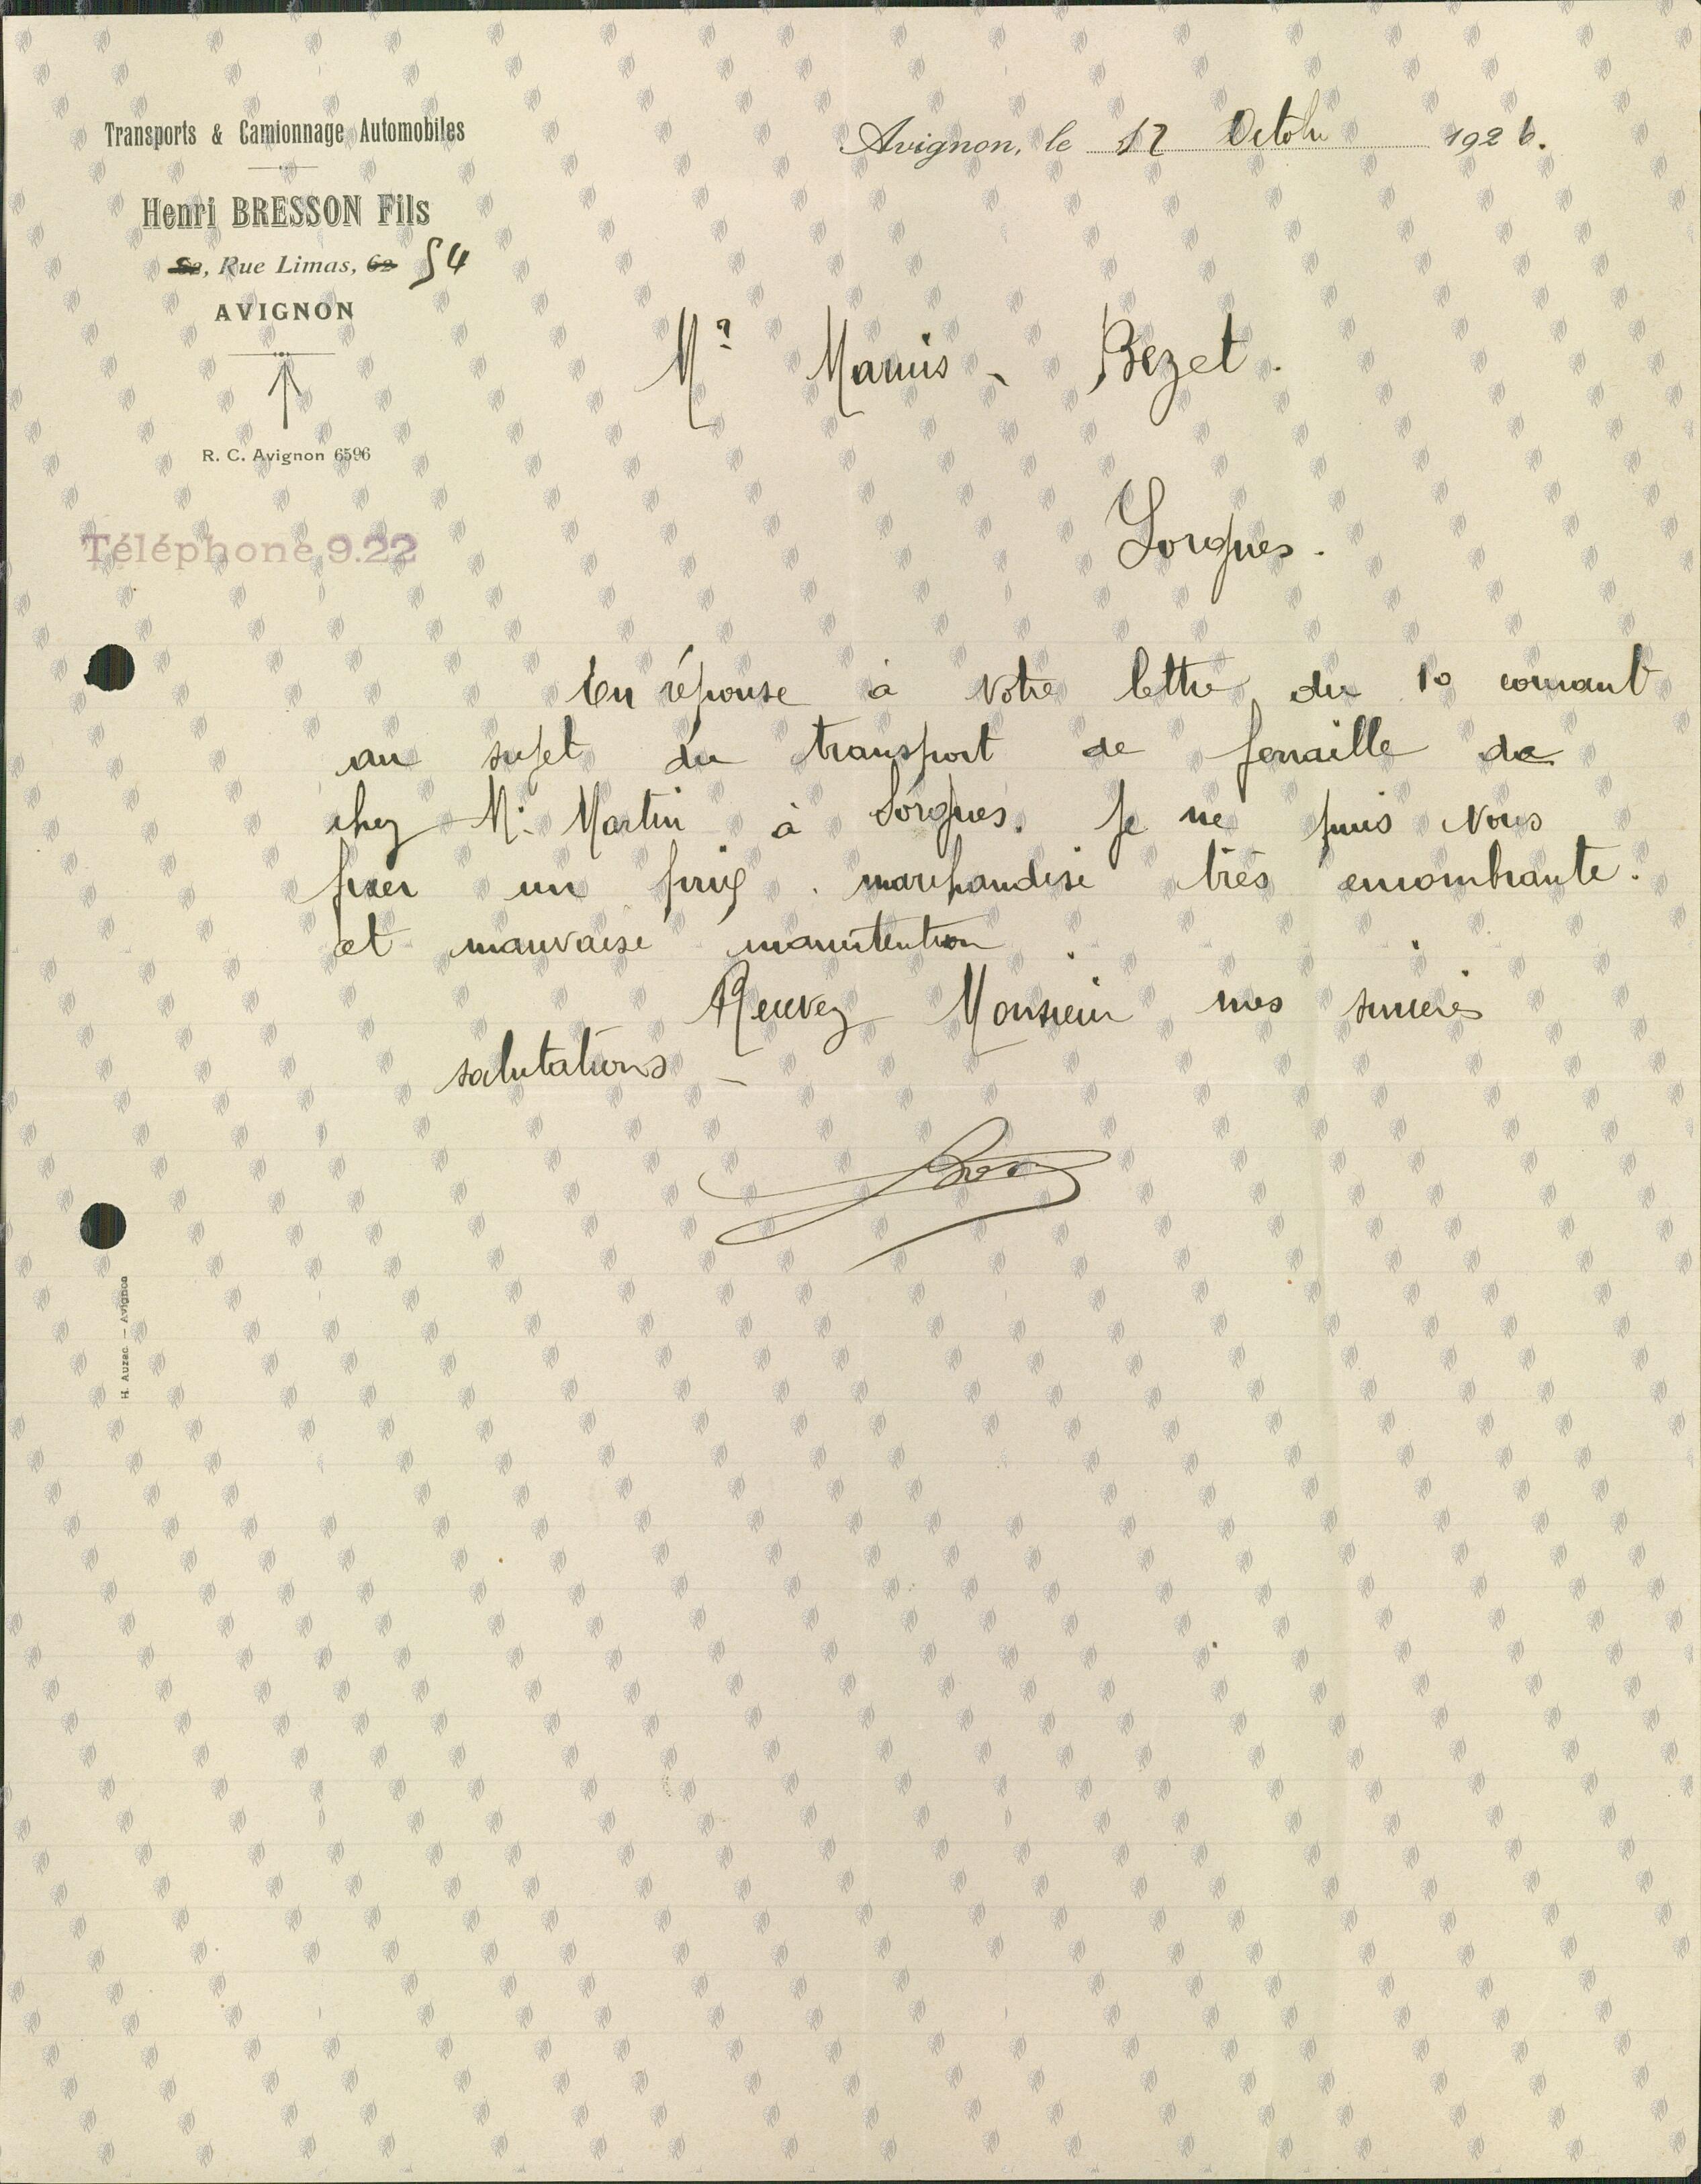 Transports & Camionnage Automobiles
Henri BRESSON Fils
62, Rue Limas, 62 54
AVIGNON
R. C. Avignon 6596
Téléphone 9.22
Avignon, le 12 Octobre 1926.
Mr Marius - Bezet.
Sorgues.
En réponse à votre lettre du 10 courant
au sujet du transport de ferraille de
chez Mr. Martin à Sorgues. Je ne puis vous
fixer un prix. marchandise très encombrante.
et mauvaise manutention.
Recevez Monsieur mes sincères
salutations -
H. Auzac — Avignon